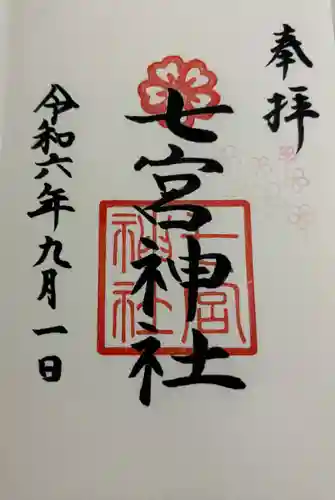 奉拝
七宮神社
七宮神社
令和六年九月一日